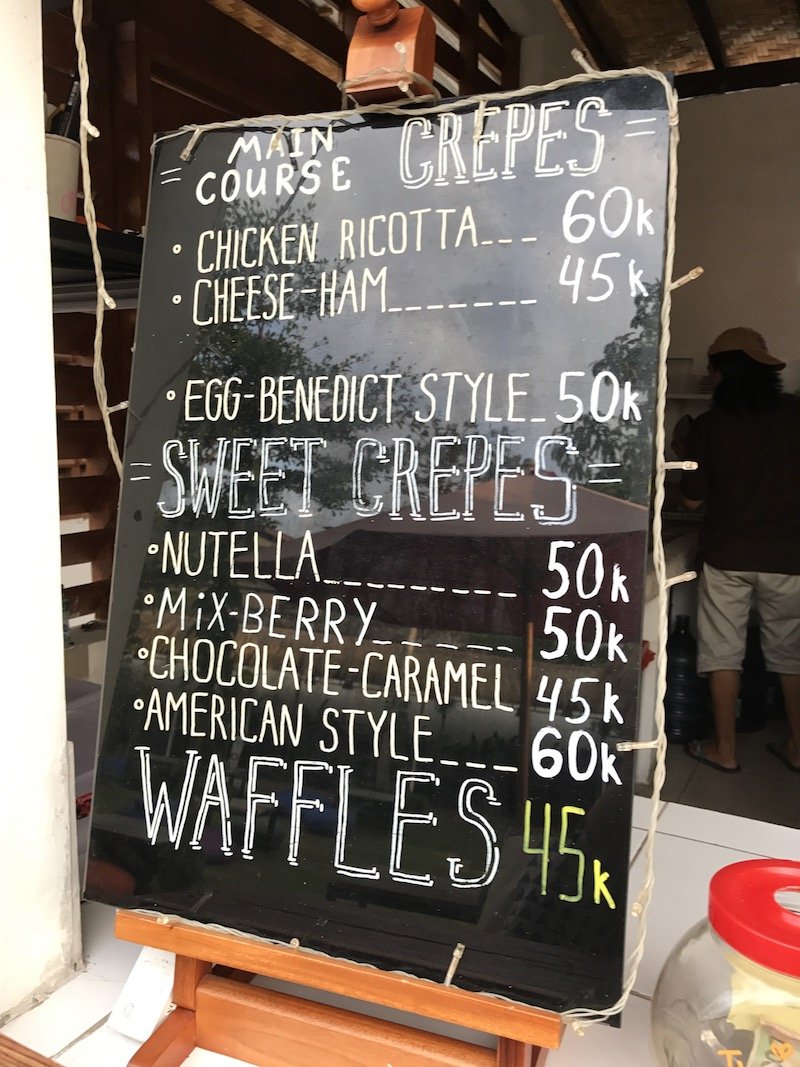 = MAIN COURSE CREPES =
• CHICKEN RICOTTA--- 60k
• CHEESE-HAM------- 45k
• EGG-BENEDICT STYLE- 50k
= SWEET CREPES =
• NUTELLA--------- 50k
• MiX-BERRY------ 50k
• CHOCOLATE-CARAMEL 45k
• AMERICAN STYLE---- 60k
WAFFLES 45k